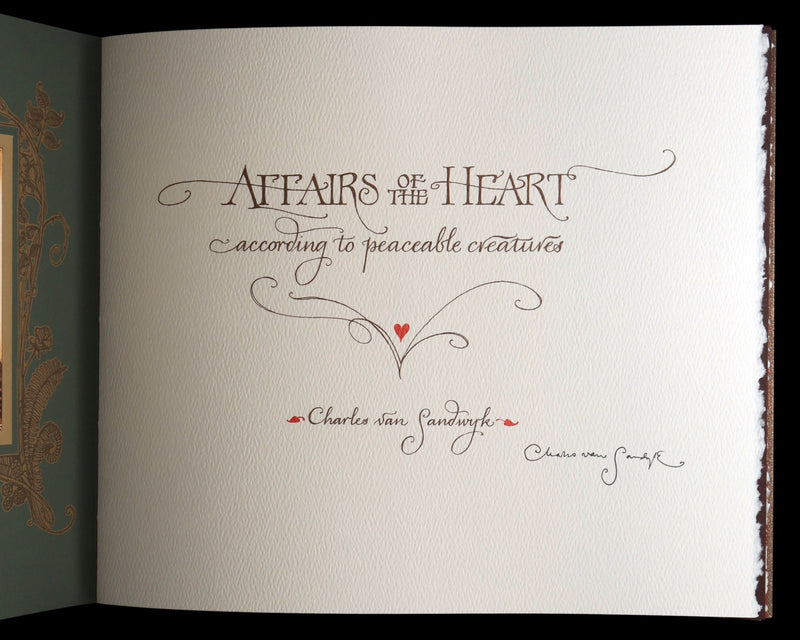 AFFAIRS OF THE HEART
according to peaceable creatures
Charles van Sandwyk
Charles van Sandwyk